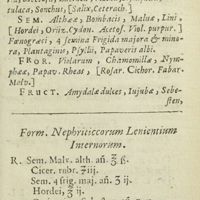 tulaca, Sonchus, [Salix, Ceterach.]
SEM. Altheæ, Bombacis, Maluæ, Lini,
[Hordei, Oriz. Cydon. Acetos. Viol. purpur.]
Fœnogræci, 4 semina Frigida majora & mino-
ra, Plantaginis, Psyllii, Papaveris albi.
FROR. Violarum, Chamomillæ, Nym-
phææ, Papav. Rheas, [Rosar. Cichor. Fabar.
Malv.]
FRUCT. Amydalæ dulces, Iujubæ, Sebe-
sten,
Form. Nephriticorum Lenientium
Internorum.
R. Sem. Malv. alth. añ. ℥ ß.
Cicer. rubr. ℥iij.
Sem. 4 frig. maj. añ. ʒ ij.
Hordei, ʒ ij.